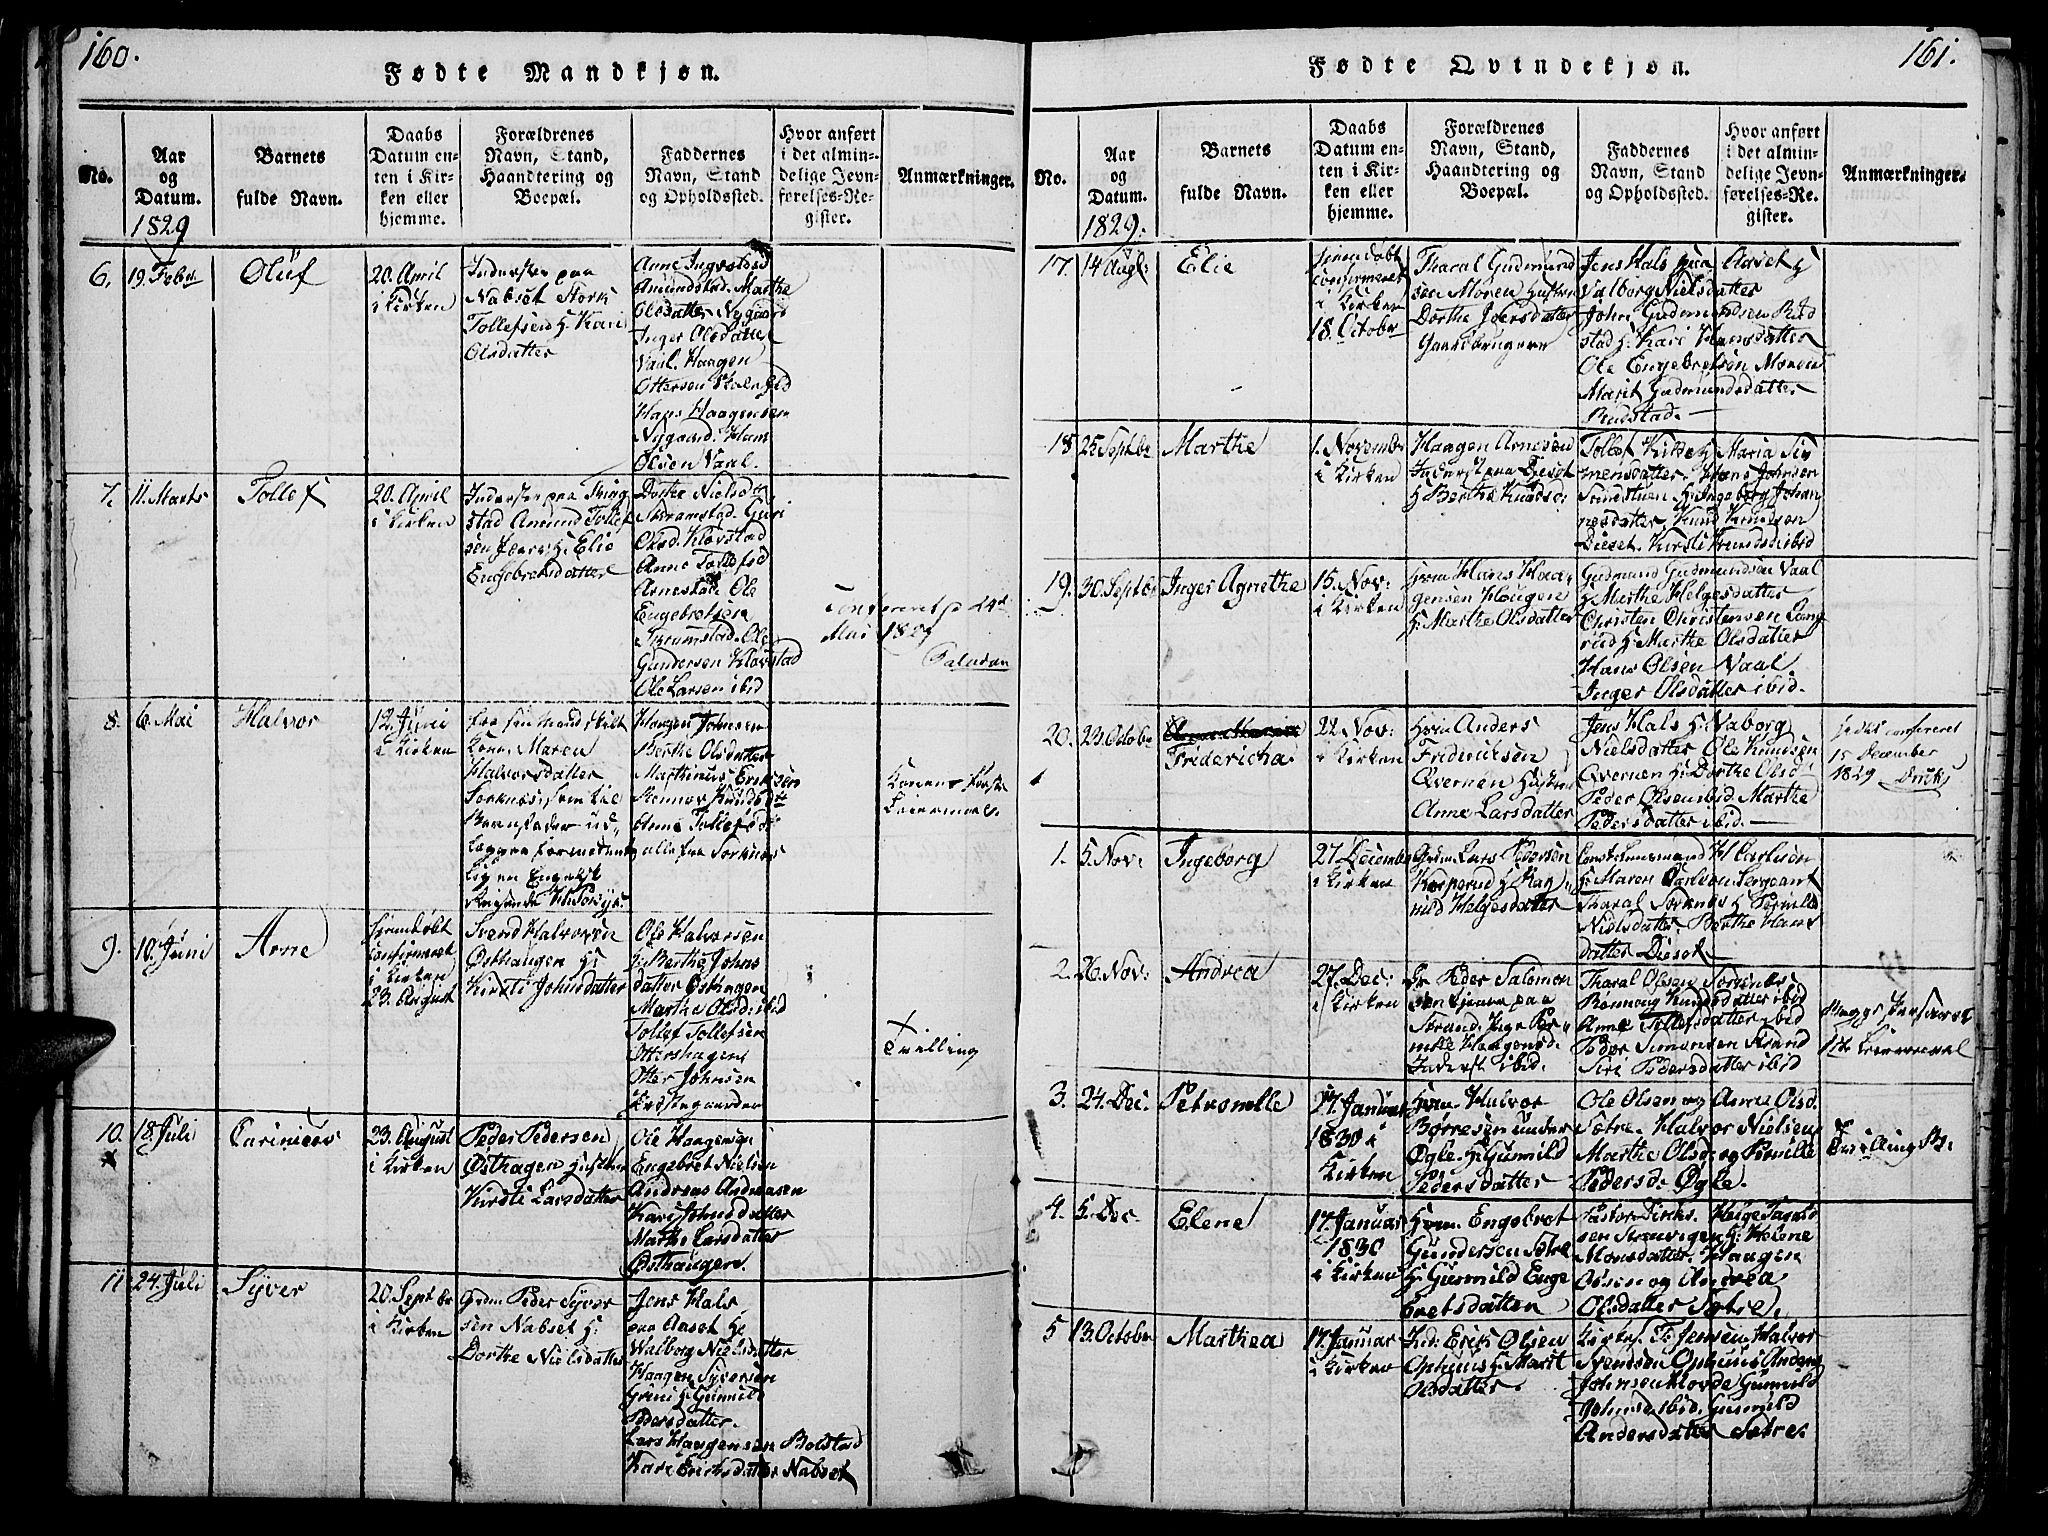 160.
Fødte Mandkjøn.
No.
Aar
og
Datum.
1829
Barnets
fulde Navn.
Daabs
Datum en-
ten i Kir-
ken eller
hjemme.
Forældrenes
Navn, Stand,
Haandtering og
Boepæl.
Faddernes
Navn, Stand
og Opholdssted.
Hvor anført
i det almin-
delige Jevn-
førelses-Re-
gister.
Anmærkninger.
6.
19. Febr
Oluf
20. April
i Kirken
Inderster paa
Nabset Stork
Tollefsen H. Kari
Olsdatter
Anne Ingvolds
Amundstad. Marthe
Olsdatter Nygaard
Inger Olsdatter
Vaal. Haagen
Ottersen
Hans Haagensen
Nygaard. Hans
Olsen Vaal.
7.
11. Marts
Tollef
20. April
i Kirken
Inderster paa
stad Amund Tollef
sen H. Elie
Engebretsdatter
Dorthe Nielsd
Skramstad. Guri
Olsd. Klovstad
Anne Tollefsd
Arnestad Ole
Engebretsen
Skramstad. Ole
Gundersen Klovstad
Ole Larsen ibid
Confereret p 24de
Mai 1829
Paludan
8.
6. Mai
Halvor
12. Juni
i Kirken
fra sin Mand skilt
Kone. Maren
Halvorsdatter
Sorknes, som til
Barnefader ud-
lægger formedent-
lig en Engelsk
Reisende
Haagen Johnsen
Berthe Olsdatter
Marthinus Eriksen
Rønnov Knudsd
Anne Tollefsd
alle fra Sorknes
Konens første
Leiermaal.
9.
10. Juni
Arne
hjemmedøbt
confirmeret
i Kirken
23. August
Svend Halvorsen
Østhaugen H:
Kirsti Johnsdatter
Ole Halvorsen
H: Berthe Johns
datter Østhagen
Marthe Olsd: ibid
Tollef Tollefsen
Ottershagen
Otter Johnsen
Præstegaarden
Tvilling
10.
18. Juli
23. August
i Kirken
Peder Pedersen
Østhagen Hustrue
Kirsti Larsdatter
Ole Haagensen
Engebret Nielsen
Andreas Andreasen
Kari Johnsdatter
Marthe Larsdatter
Østhaugen.
11
24. Juli
Syver
20. Septbr
i Kirken
Grdm. Peder Syver
sen Nabset H:
Dorthe Nielsdatter
Jens Hals
paa Aaset H:
Walborg Nielsdatter
Haagen Syversen
Grini H: Gunnild
Pedersdatter.
Lars Haagensen Bolstad
Kari Eriksdatter Nabset
161.
Fødte Qvindekjøn.
No.
Aar
og
Datum.
1829.
Barnets
fulde Navn.
Daabs
Datum en-
ten i Kir-
ken eller
hjemme.
Forældrenes
Navn, Stand,
Haandtering og
Boepæl.
Faddernes
Navn, Stand
og Opholdssted.
Hvor anført
i det almin-
delige Jevn-
førelses-Re-
gister.
Anmærkninger.
17.
14 Augl:
Elie
hjemmedøbt
confirmeret
i Kirken
18. October
Tharal Gudmund
sen Moren Hustru
Dorthe Joersdatter
Gaardbrugere
Jens Hals paa Aaset H
Valborg Nielsdatter
John Gudmundsen Rud
stad H: Kari Hansdatter
Ole Engebretsen Moren
Marit Gudmundsdatter
Rudstad.
18
25 Septbr
Marthe
1. Novembr
i Kirken
Haagen Arnesen
Inderst paa Dieset
H Berthe Knudsd:
Tollef Kilde H Maria Si
mensdatter Hans Johnsen
H: Ingeborg Johan
nesdatter. Knud Knudsen
Dieset. Kirsti Knudsd ibid
19.
30. Septbr
Inger Agnethe
15. Nov:
i Kirken
Grdm Hans Haa-
gensen Haugen
H: Marthe Olsdatter
Gudmund Gudmundsen Vaal
H: Marthe Helgesdatter
Christen Christensen Lang
rud H: Marthe Olsdatter
Hans Olsen Vaal.
Inger Olsdatter ibid.
20.
23. Octobr
Fridericha
22. Nov:
i Kirken
Grdm Anders
Fridericksen
Qvernen Hustru
Anne Larsdatter
Jens Hals H: Vaborg
Nielsdatter Ole Knudsen
Qvernen H: Dorthe Olsd
Peder Olsen ibid Marthe
Pedersdatter ibid.
confereret
15 December
1829 Dircks
1.
5. Nov:
Ingeborg
27 Decembr
i Kirken
Grdm: Lars Pedersen
Kasperud H: Rag-
nild Helgesdatter
Const: Lensmand H Carlsen
H: Maren Carlsen Sergeant
Tharal Sorknes H Pernille
Nielsdatter. Berthe Hans
datter Dieset
2.
26. Nov:
Andrea
27. Dec:
i Kirken
Dr Peder Salomon
sen tjener paa
Strand. Pige Per-
nille Haagensd:
Inderst ibid.
Tharal Olsen Sorknes
Rønnaug Knudsdatter ibid
Anne Tollefsdatter ibid
Peder Simensen Strand
Siri Pedersdatter ibid
Begges
1ste Leiermaal
3.
24. Dec.
Petronelle
17. Januar
1830 i
Kirken
Halvor
Børresen under
Ogle. H: Gunnild
Pedersdatter
Ole Olsen og Anne Olsd.
Sætre. Halvor Nielsen
Marthe Olsd og Pernille
Pedersd. Øgle.
Tvilling B:
4.
5. Dec.
Elene
17. Januar
1830
i Kirken
Engebret
Gundersen Sætre
H. Gunnild Enge
bretsdatter
Pastor Dircks. Helge
sen H: Helene
Monsdatter. Haagen
Olsen og Andrea
Olsdatter Sætre.
5
13. October
Marthea
17. Januar
i Kirken
Erik Olsen
Ophuus H: Marit
Olsdatter.
Kirks. P. Jensen Halvor
Svendsen Ophuus Anders
Johnsen Hovde Gunnild
Johnsd. ibid. Gunnild
Andersdatter Sætre.